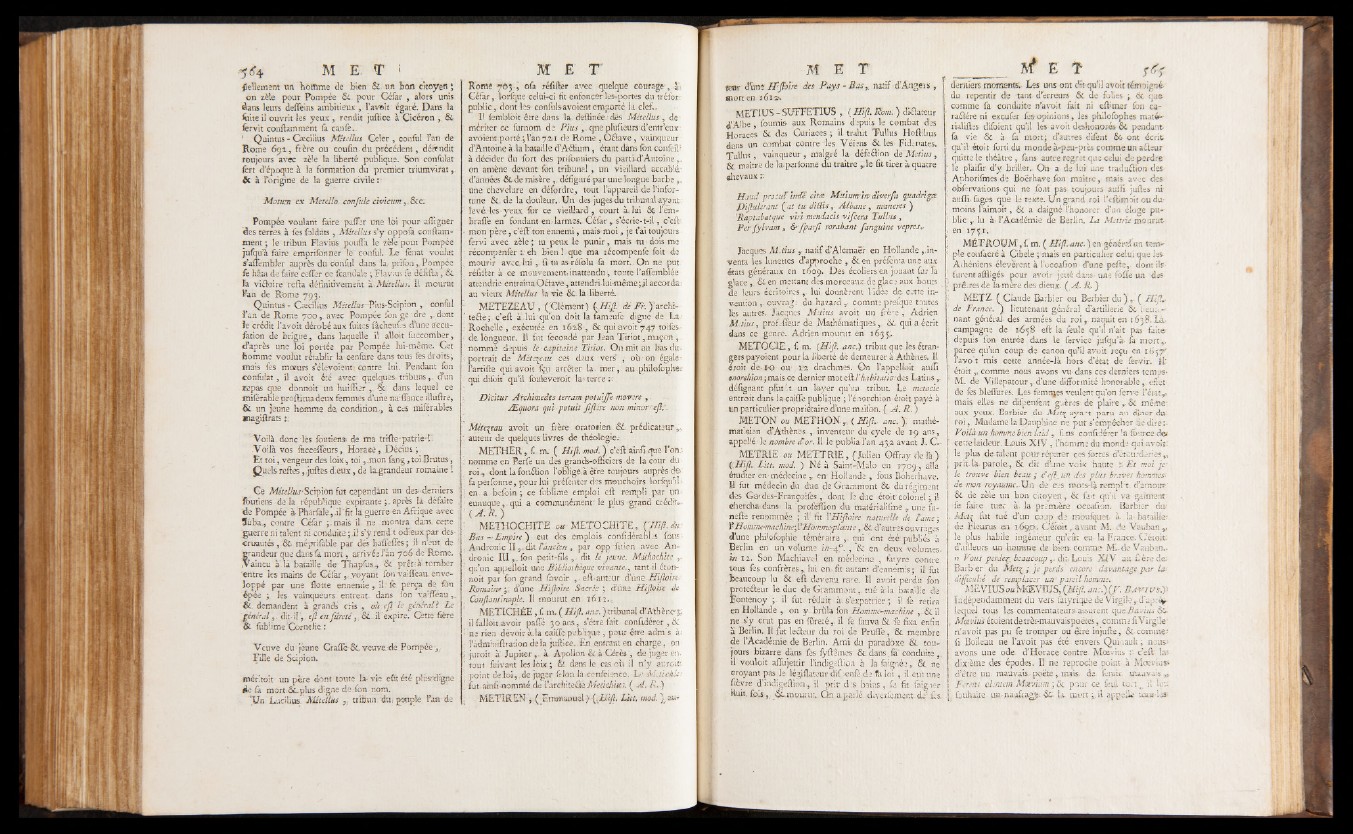 564 M E T
réellement un homme de bien & un bon citoyen ;
son zèle pour Pompée & pour César , alors unis
dans leurs desseins ambitieux , l'avoit égaré. Dans la
suite il ouvrit les yeux , rendit justice à Cicéron , &
servit constamment sa cause.
Quintus - Cæcilius Métellus Celer , consul l'an de
Rome 692 , frère ou cousin du précédent , défendit
toujours avec zèle la liberté publique. Son consulat
sert d'époque à la formation du premier triumvirat ,
& à l'origine de la guerre civile :
Motum ex Metello consule civicum , &c.
Pompée voulant faire passer une loi pour assigner
des terres à ses soldats , Métellus s'y opposa constam-
ment ; le tribun Flavius poussa le zèle pour Pompée
jusqu'à faire emprisonner le consul. Le sénat voulut
s'assembler auprès du consul dans la prison , Pompée
se hâta de faire cesser ce scandale ; Flavius se désista , &
la victoire resta définitivement à Métellus. Il mourut
l'an de Rome 703.
Quintus - Cæcilius Métellus Pius-Scipion , consul
l'an de Rome 700 , avec Pompée son gendre , dont
le crédit l'avoit dérobé aux suites fâcheuses d'une accu-
sation de brigue , dans laquelle il alloit succomber ,
d'après une loi portée par Pompée lui-même. Cet
homme voulut rétablir la censure dans tous ses droits,
mais ses mœurs s'élevoient contre lui. Pendant son
consulat , il avoit été avec quelques tribuns , d'un
repas que donnoit un huissier , & dans lequel ce
misérable prostitua deux femmes d'une naissance illustre,
& un jeune homme de condition , à ces misérables
magistrats :
Voilà donc les soutiens de ma triste patrie !
Voilà vos successeurs , Horace , Décius ;
Et toi , vengeur des loix , toi , mon sang , toi Brutus ;
Quels restes , justes dieux , de la grandeur romaine !
Ce Métellus-Scipion fut cependant un des derniers
soutiens de la république expirante ; après la défaite
de Pompée à Pharsale , il fit la guerre en Afrique avec
Juba , contre César ; mais il ne montra dans cette
guerre ni talent ni conduite ; il s'y rendit odieux par des
cruautés , & méprisable par des bassesses ; il n'eut de
grandeur que dans sa mort , arrivée l'an 706 de Rome.
Vaincu à la bataille de Thapsus , & prêt à tomber
entre les mains de César , voyant son vaisseau enve-
loppé par une flotte ennemie , il se perça de son
épée ; les vainqueurs entrent dans son vaisseau ,
& demandent à grands cris , où est le général ? Le
général , dit-il , est en sûreté , & il expire. Cette fière
& sublime Cornélie :
Veuve du jeune Crasse & veuve de Pompée ,
Fille de Scipion.
méritoit un père dont toute la vie eût été plus digne
de sa mort & plus digne de son nom.
Un Lucilius Métellus , tribun du peuple l'an de
M E T
Rome 703 , osa résister avec quelque courage , à
César , lorsque celui-ci fit enfoncer les portes du trésor
public , dont les consuls avoient emporté la clef.
Il sembloit être dans la destinée des Métellus , de
mériter ce surnom de Pius , que plusieurs d'entr'eux
avoient porté ; l'an 721 de Rome , Octave , vainqueur
d'Antoine à la bataille d'Actium , étant dans son conseil
à décider du sort des prisonniers du parti d'Antoine ,
on amène devant son tribunal , un vieillard accablé
d'années & de misère , défiguré par une longue barbe ,
une chevelure en désordre , tout l'appareil de l'infor-
tune & de la douleur. Un des juges du tribunal ayant
levé les yeux sur ce vieillard , court à lui & l'em-
brasse en fondant en larmes. César , s'écrie-t-il , c'est
mon père , c'est ton ennemi , mais moi , je t'ai toujours
servi avec zèle ; tu peux le punir , mais tu dois me
récompenser : eh bien ! que ma récompense soit de
mourir avec lui , si tu as résolu sa mort. On ne put
résister à ce mouvement inattendu , toute l'assemblée
attendrie entraîna Octave , attendri lui-même ; il accorda
au vieux Métellus la vie & la liberté.
METEZEAU , ( Clément ) ( Hist. de Fr. ) archi-
tecte ; c'est à lui qu'on doit la fameuse digne de La
Rochelle , exécutée en 1628 , & qui avoit 747 toises
de longueur. Il fut secondé par Jean Tiriot , maçon ,
nommé depuis le capitaine Tiriot. On mit au bas du
portrait de Métezeau ces deux vers , où on égale
l'artiste qui avoit sçu arrêter la mer , au philosophe
qui disoit qu'il souleveroit la terre :
Dicitur Archimedes terram potuisse movere ,
Æquora qui potuit sistere non minor est.
Métezeau avoit un frère oratorien & prédicateur ,
auteur de quelques livres de théologie.
METHER , f. m. ( Hist. mod. ) c'est ainsi que l'on
nomme en Perse un des grands-officiers de la cour du
roi , dont la fonction l'oblige à être toujours auprès de
sa personne , pour lui présenter des mouchoirs lorsqu'il
en a besoin ; ce sublime emploi est rempli par un
eunuque , qui a communément le plus grand crédit.
( A. R. )
METHOCHITE ou METOCHITE, ( Hist. du
Bas - Empire ) eut des emplois considérables sous
Andronic II , dit l'ancien , par opposition avec An-
dronic III , son petit-fils , dit le jeune. Méthochite ,
qu'on appelloit une Bibliothèque vivante , tant il éton-
noit par son grand savoir , est auteur d'une Histoire
Romaine ; d'une Histoire Sacrée ; d'une Histoire de
Constantinople. Il mourut en 1612.
METICHÉE , f. m. ( Hist. anc. ) tribunal d'Athènes ;
il falloit avoir passé 30 ans , s'être fait considérer , &
ne rien devoir à la caisse publique , pour être admis à
l'administration de la justice. En entrant en charge , on
juroit à Jupiter , à Apollon & à Cérès , de juger en
tout suivant les loix ; & dans le cas où il n'y auroit
point de loi , de juger selon la conscience. Le Métichée
fut ainsi nommé de l'architecte Metichius. ( A. R. )
METIREN , ( Emmanuel ) ( Hist. Litt. mod. ) au-
M E T
teur d'une Histoire des Pays - Bas , natif d'Angers ,
mort en 1612.
METIUS - SUFFETIUS , ( Hist. Rom. ) dictateur
d'Albe , soumis aux Romains depuis le combat des
Horaces & des Curiaces ; il trahit Tullus Hostilius
dans un combat contre les Véiens & les Fidénates.
Tullus , vainqueur , malgré la défection de Metius ,
& maître de la personne du traître , le fit tirer à quatre
chevaux :
Haud procul indè citæ Metium in diversa quadrigæ
Distulerant ( at tu dictis , Albane , maneres )
Raptabatque viri mendacis viscera Tullus ,
Per sylvam , & sparsi rorabant sanguine vepres.
Jacques Metius , natif d'Alcmaër en Hollande , in-
venta les lunettes d'approche , & en présenta une aux
états généraux en 1609. Des écoliers en jouant sur la
glace , & en mettant des morceaux de glace au bout
de leurs écritoires , lui donnèrent l'idée de cette in-
vention , ouvrage du hazard , comme presque toutes
les autres. Jacques Metius avoit un frère , Adrien
Metius , professeur de Mathématiques , & qui a écrit
dans ce genre. Adrien mourut en 1635.
METŒCIE , f. m. ( Hist. anc. ) tribut que les étran-
gers payoient pour la liberté de demeurer à Athènes. Il
étoit de 10 ou 12 drachmes. On l'appelloit aussi
enorchion ; mais ce dernier mot est l'habitatio des Latins ,
désignant plutôt un loyer qu'un tribut. Le metœcie
entroit dans la caisse publique ; l'énorchion étoit payé à
un particulier propriétaire d'une maison. ( A. R. )
METON ou METHON , ( Hist. anc. ) mathé-
maticien d'Athènes , inventeur du cycle de 19 ans ,
appellé le nombre d'or. Il le publia l'an 432 avant J. C.
METRIE ou METTRIE , ( Julien Offray de la )
( Hist. Litt. mod. ) Né à Saint-Malo en 1709 , alla
étudier en médecine , en Hollande , sous Boherhave.
Il fut médecin du duc de Grammont , & du régiment
des Gardes-Françoises , dont le duc étoit colonel ; il
chercha dans la profession du matérialisme , une fu-
neste renommée ; il fit l'Histoire naturelle de l'ame ;
l'Homme-machine ; l'Homme-plante , & d'autres ouvrages
d'une philosophie téméraire , qui ont été publiés à
Berlin en un volume in-4°. , & en deux volumes
in 12. Son Machiavel en médecine , satyre contre
tous ses confrères , lui en fit autant d'ennemis ; il fut
beaucoup lu & est devenu rare. Il avoit perdu son
protecteur le duc de Grammont , tué à la bataille de
Fontenoy ; il fut réduit à s'expatrier ; il se retira
en Hollande , on y brûla son Homme-machine , & il
ne s'y crut pas en sûreté , il se sauva & se fixa enfin
à Berlin. Il fut lecteur du roi de Prusse , & membre
de l'Académie de Berlin. Ami du paradoxe & tou-
jours bizarre dans ses systêmes & dans sa conduite ,
il vouloit assujettir l'indigestion à la saignée , & ne
croyant pas le législateur dispensé de sa loi , il eut une
fièvre d'indigestion , il prit des bains , se fit saigner
huit fois , & mourut. On a parlé diversement de ses
M E T 565
derniers momens. Les uns ont dit qu'il avoit témoigné
du repentir de tant d'erreurs & de folies ; & que
comme sa conduite n'avoit fait ni estimer son ca-
ractère ni excuser ses opinions , les philosophes maté-
rialistes disoient qu'il les avoit deshonorés & pendant
sa vie & à sa mort ; d'autres disent & ont écrit
qu'il étoit sorti du monde à-peu-près comme un acteur
quitte le théâtre , sans autre regret que celui de perdre
le plaisir d'y briller. On a de lui une traduction des
Aphorismes de Boërhave son maître , mais avec des
observations qui ne sont pas toujours aussi justes ni
aussi sages que le texte. Un grand roi l'estimoit ou du-
moins l'aimoit , & a daigné l'honorer d'un éloge pu-
blic , lu à l'Académie de Berlin. La Metrie mourut
en 1751.
MÉTROUM , f. m. ( Hist. anc. ) en général un tem-
ple consacré à Cibèle ; mais en particulier celui que les
Athéniens élevèrent à l'occasion d'une peste , dont ils
furent affligés pour avoir jetté dans une fosse un des
prêtres de la mère des dieux. ( A. R. )
METZ ( Claude Barbier ou Berbier du ) , ( Hist.
de France. ) lieutenant général d'artillerie & lieute-
nant général des armées du roi , naquit en 1638. La
campagne de 1658 est la seule qu'il n'ait pas faite
depuis son entrée dans le service jusqu'à sa mort ,
parce qu'un coup de canon qu'il avoit reçu en 1657
l'avoit mis cette année-là hors d'état de servir. Il
étoit , comme nous avons vu dans ces derniers temps
M. de Villepatour , d'une difformité honorable , effet
de ses blessures. Les femmes veulent qu'on serve l'état ,
mais elles ne dispensent guères de plaire , & même
aux yeux. Barbier du Metz ayant paru au dîner du
roi , Madame la Dauphine ne put s'empêcher de dire :
Voilà un homme bien laid , sans considérer la source de
cette laideur. Louis XIV , l'homme du monde qui avoit
le plus de talent pour réparer ces sortes d'étourderies ,
prit la parole , & dit d'une voix haute : Et moi je
le trouve bien beau ; c'est un des plus braves hommes
de mon royaume. Un de ces mots-là remplit d'amour
& de zèle un bon citoyen , & fait qu'il va gaiment
se faire tuer à la première occasion. Barbier du
Metz fut tué d'un coup de mousquet à la bataille
de Fleurus en 1690. C'étoit , avant M. de Vauban ,
le plus habile ingénieur qu'eût eu la France. C'étoit
d'ailleurs un homme de bien comme M. de Vauban.
« Vous perdez beaucoup , dit Louis XIV au frère de
Barbier du Metz ; je perds encore davantage par la
difficulté de remplacer un pareil homme.
MEVIUS ou MŒVIUS, ( Hist. anc. ) ( V. BAVIUS. )
Indépendamment du vers satyrique de Virgile , d'après
lequel tous les commentateurs assurent que Bavius &
Mœvius étoient de très-mauvais poëtes , comme si Virgile
n'avoit pas pu se tromper ou être injuste , & comme
si Boileau ne l'avoit pas été envers Quinault ; nous
avons une ode d'Horace contre Mœvius : c'est la
dixième des épodes. Il ne reproche point à Mœvius
d'être un mauvais poëte , mais de sentir mauvais ,
Ferens olentem Mævium ; & pour ce seul tort , il lui
souhaite un naufrage & la mort ; il appelle tous les